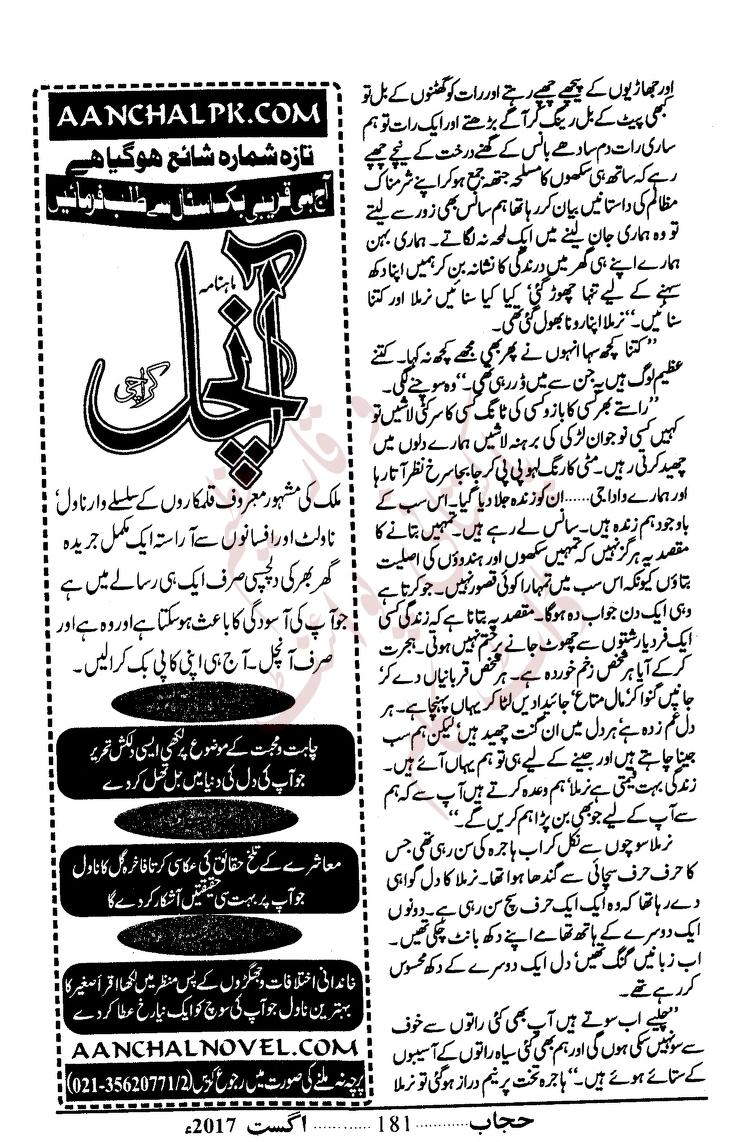 اور جھاڑیوں کے پیچھے چھپے رہتے اور رات کو گھٹنوں کے بل تو
کبھی پیٹ کے بل رینگ کر آگے بڑھتے اور ایک رات تو ہم
ساری رات دم سادھے بانس کے گھنے درخت کے نیچے چھپے
رہے کہ ساتھ ہی سکھوں کا مسلحہ جتھہ جمع ہو کر اپنے شرمناک
مظالم کی داستانیں بیان کر رہا تھا ہم سانس بھی زور سے لیتے
تو وہ ہماری جان لینے میں ایک لمحہ نہ لگاتے۔ ہماری بہن
ہمارے اپنے ہی گھر میں درندگی کا نشانہ بن کر ہمیں اپنا دکھ
سہنے کے لیے تنہا چھوڑ گئی‘ کیا کیا سنائیں نرملا اور کتنا
سنائیں۔‘‘ نرملا اپنا رونا بھول گئی تھی۔
’’کتنا کچھ سہا انہوں نے پھر بھی مجھے کچھ نہ کہا۔ کتنے
عظیم لوگ ہیں یہ جن سے میں ڈر رہی تھی۔‘‘ وہ سوچنے لگی۔
’’راستے بھر کسی کا بازو کسی کی ٹانگ کسی کا سر کٹی لاشیں تو
کہیں کسی نوجوان لڑکی کی برہنہ لاشیں ہمارے دلوں میں
چھید کرتی رہیں۔ مٹی کا رنگ لہو پی پی کر جا بجا سرخ نظر آتا رہا
اور ہمارے دادا جی...... ان کو زندہ جلا دیا گیا۔ اس سب کے
باوجود ہم زندہ ہیں۔ سانس لے رہے ہیں۔ تمہیں بتانے کا
مقصد یہ ہرگز نہیں کہ تمہیں سکھوں اور ہندوؤں کی اصلیت
بتاؤں کیونکہ اس سب میں تمہارا کوئی قصور نہیں۔ جو کرتا ہے
وہی ایک دن جواب دہ ہوگا۔ مقصد یہ بتانا ہے کہ زندگی کسی
ایک فرد یا رشتوں سے چھوٹ جانے پر ختم نہیں ہوتی۔ ہجرت
کر کے آیا ہر شخص زخم خوردہ ہے۔ ہر شخص قربانیاں دے کر‘
جانیں گنوا کر‘ مال متاع‘ جائیدادیں لٹا کر یہاں پہنچا ہے۔ ہر
دل غم زدہ ہے‘ ہر دل میں ان گنت چھید ہیں‘ لیکن ہم سب
جینا چاہتے ہیں اور جینے کے لیے ہی تو ہم یہاں آئے ہیں۔
زندگی بہت قیمتی ہے نرملا‘ ہم وعدہ کرتے ہیں آپ سے کہ ہم
سے آپ کے لیے جو بھی بن پڑا ہم کریں گے۔‘‘
نرملا سوچوں سے نکل کر اب ہاجرہ کی سن رہی تھی جس
کا حرف حرف سچائی سے گندھا ہوا تھا۔ نرملا کا دل گواہی
دے رہا تھا کہ وہ ایک ایک حرف سچ سن رہی ہے۔ دونوں
ایک دوسرے کے ہاتھ تھامے اپنے دکھ بانٹ چکی تھیں۔
اب زبانیں گنگ تھیں‘ دل ایک دوسرے کے دکھ محسوس
کر رہے تھے۔
’’چلیے اب سوتے ہیں آپ بھی کئی راتوں سے خوف
سے سو نہیں سکی ہوں گی اور ہم بھی کئی سیاہ راتوں کے آسیبوں
کے ستائے ہوئے ہیں۔‘‘ ہاجرہ تخت پر نیم دراز ہو گئی تو نرملا
AANCHALPK.COM
تازہ شمارہ شائع ہوگیا ہے
آج ہی قریبی بک اسٹال سے طلب فرمائیں
ماہنامہ
آنچل
کراچی
ملک کی مشہور معروف قلمکاروں کے سلسلے وار ناول‘
ناولٹ اور افسانوں سے آراستہ ایک مکمل جریدہ
گھر بھر کی دلچسپی صرف ایک ہی رسالے میں ہے
جو آپ کی آسودگی کا باعث ہو سکتا ہے اور وہ ہے اور
صرف آنچل۔ آج ہی اپنی کاپی بک کرالیں۔
چاہت و محبت کے موضوع پر لکھی ایسی دلکش تحریر
جو آپ کی دل کی دنیا میں جل تھل کر دے
معاشرے کے تلخ حقائق کی عکاسی کرتا فاخرہ گل کا ناول
جو آپ پر بہت سی حقیقتیں آشکار کر دے گا
خاندانی اختلافات و جھگڑوں کے پس منظر میں لکھا اقرأ صغیر کا
بہترین ناول جو آپ کی سوچ کو ایک نیا رخ عطا کر دے
AANCHALNOVEL.COM
پرچہ نہ ملنے کی صورت میں رجوع کریں (021-35620771/2)
حجاب ............ 181 ............ اگست 2017ء